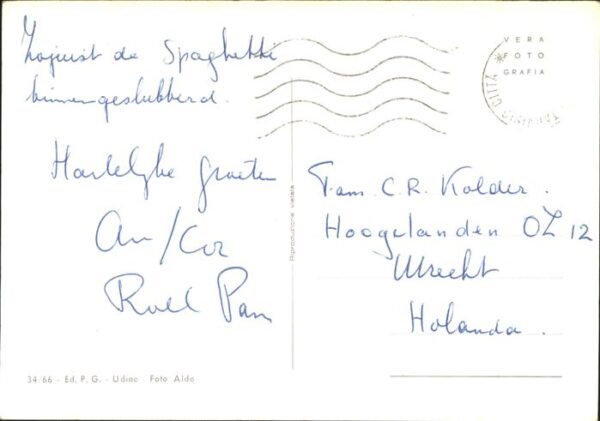 Zojuist de Spaghetti
binnengeslubberd.
Hartelijke groeten
An/Cor
Roel Pam
34/66 - Ed. P. G. - Udine - Foto Aldo
Riproduzione vietata
VERA
FOTO
GRAFIA
CITTÀ
Fam. C.R. Kolder.
Hoogelanden OZ 12
Utrecht
Holanda.